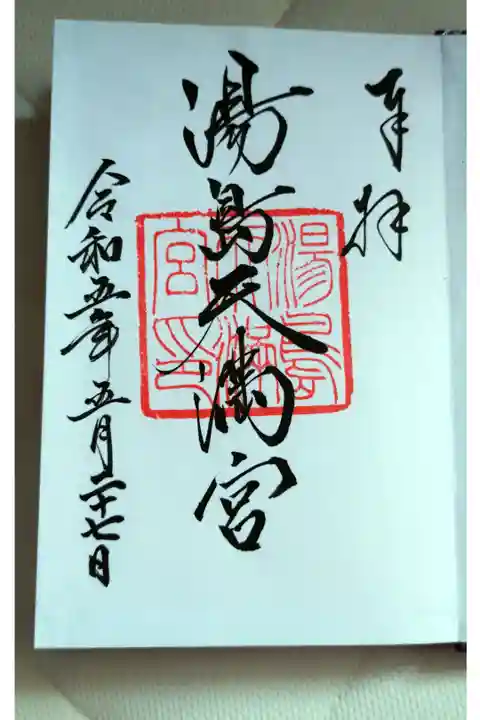 奉拝
湯島天満宮
湯島天満宮印
令和五年五月二十七日